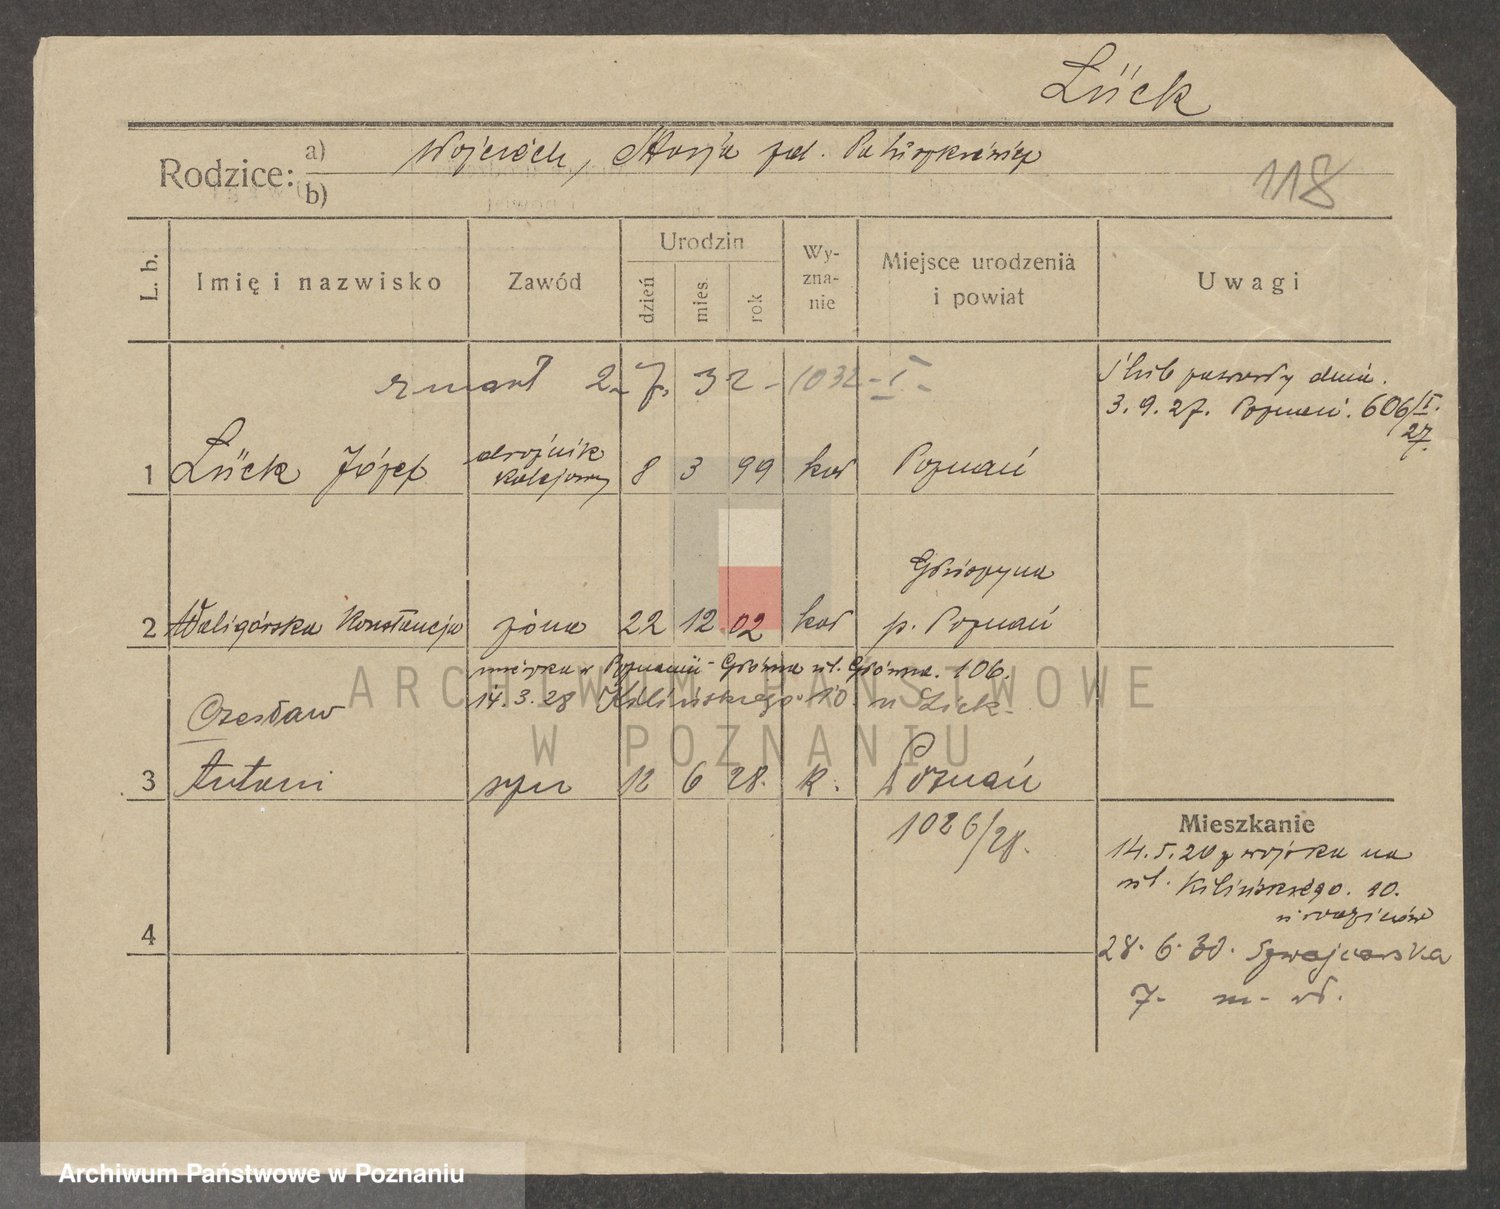 Lück
Rodzice: a) Wojciech, Marja
b)
118
L. b.
Imię i nazwisko
Zawód
Urodzin
dzień
mies.
rok
Wy-
zna-
nie
Miejsce urodzenia
i powiat
Uwagi
zmarł 2. 7. 32 - 1032 - I -
ślub zawarły dnia.
3. 9. 27. Poznań. 606/I.
27.
1 Lück Józef drożnik kolejowy 8 3 99 kat Poznań
Głuszyna
2 Waligórska Konstancja żona 22 12 02 kat p. Poznań
mieszka w Poznaniu - Główna ul. Główna. 106.
14. 3. 28 Kilińskiego 10. u Lück -
Czesław
3 Antoni syn 12 6 28. k. Poznań
1026/28.
4
Mieszkanie
14. 5. 20 z wojska na
ul. Kilińskiego. 10.
u rodziców
28. 6. 30. Szwajcarska
7 - m - wł.
ARCHIWUM PAŃSTWOWE
W POZNANIU
Archiwum Państwowe w Poznaniu